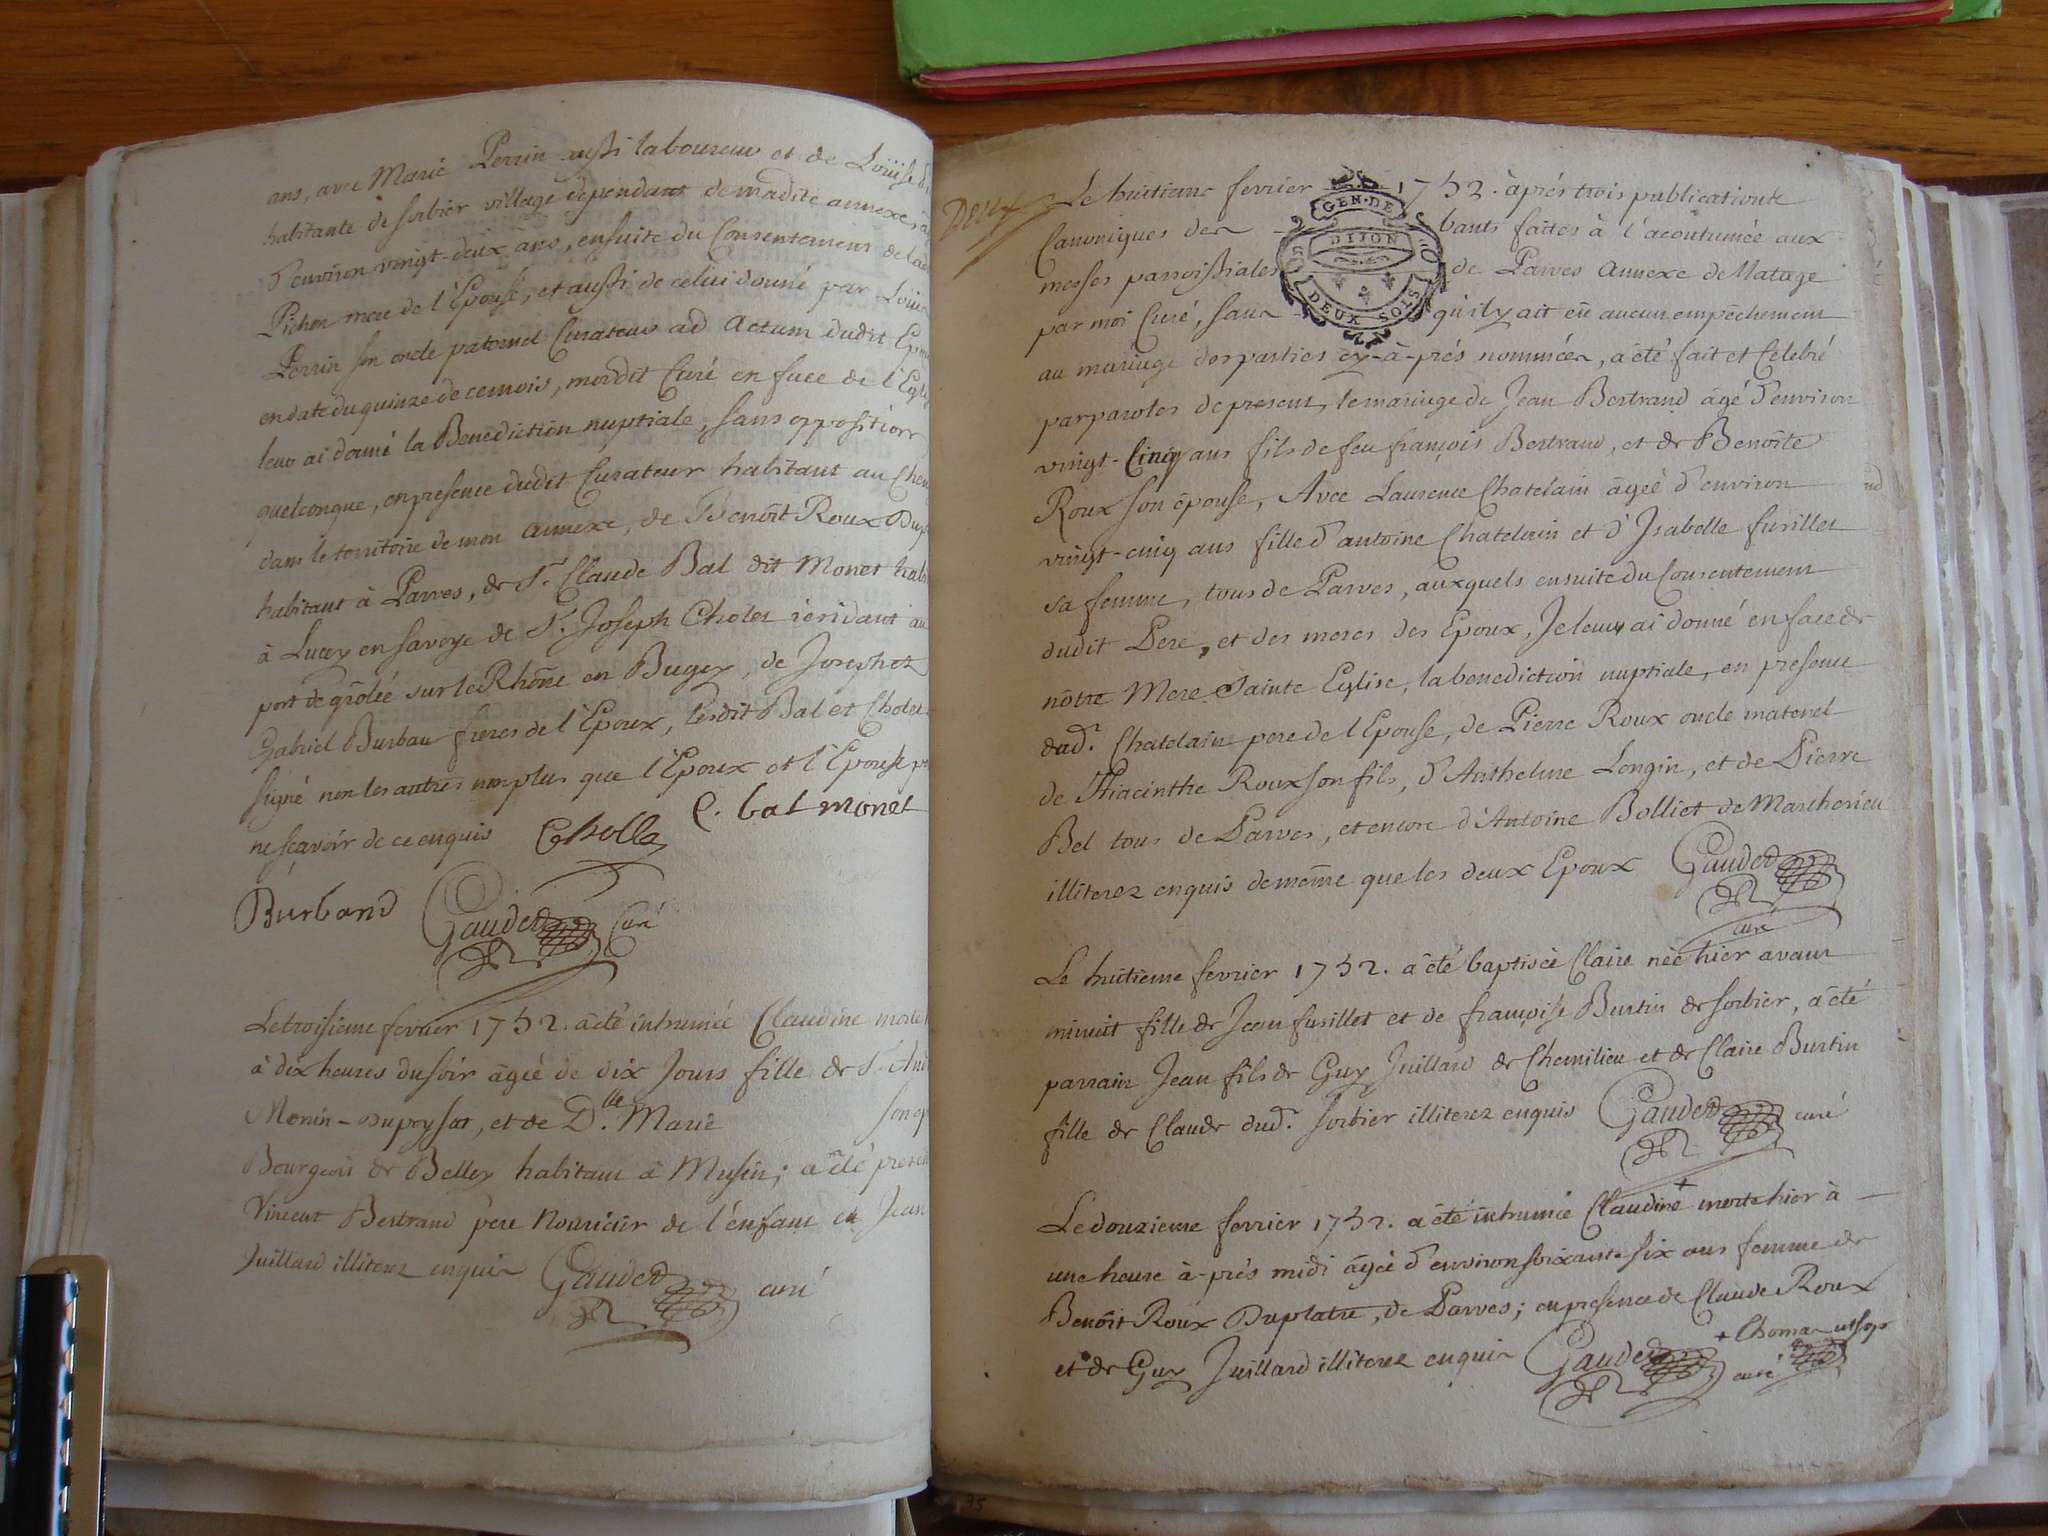 ans, avec Marie Perrin aussi laboureur et de Loüise
habitante de sorbier village dependant de madite annexe
d'environ vingt-deux ans, ensuite du Consentement de lad
Pichon mere de l'Epouse, et aussi de celui donné par Loüis
Perrin son oncle paternel Curateur ad actum dudit
en date du quinze de ce mois, moidit Curé en face de l'
leur ai donné la Benediction nuptiale, sans opposition
quelconque, en presence dudit Curateur habitant au
dans le territoire de mon annexe, de Benoît Roux
habitant à Parves, de Sr. Claude Bal dit Monet
à Lucey en savoye de Sr. Joseph Cholet residant au
port de grôlée sur le Rhône en Bugey, de Joseph et
Gabriel Burban freres de l'Epoux, lesdit Bal et Cholet
signé non les autres non plus que l'Epoux et l'Epouse p
ne scavoir de ce enquis Cholle C. bal monet
Burband Gaudet Curé
Le troisieme fevrier 1732. a été inhumée Claudine morte
à dix heures du soir âgée de dix Jours fille de Sr.
Monin-Dupeysat, et de Dlle. Marie son
Bourgeois de Belley habitant à Musin; a été
Vincent Bertrand pere Nouricier de l'enfant et Jean
Juillard illiterez enquis Gaudet curé
Deux
GEN. DE
DIJON
DEUX SOLS
Le huitieme fevrier 1732. àprés trois publications
Canoniques des bants faites à l'acoûtumée aux
messes parroissiales de Parves Annexe de Natage
par moi Curé, sans qu'il y ait eû aucun empêchement
au mariage des parties cy-à-prés nommées, à été fait et Celebré
par paroles de present, le mariage de Jean Bertrand âgé d'environ
vingt-Cinq ans fils de feu françois Bertrand, et de Benoîte
Roux son épouse, Avec Laurence Chatelain âgée d'environ
vingt-cinq ans fille d'antoine Chatelain et d'Isabelle fusillet
sa femme, tous de Parves, auxquels ensuite du Consentement
dudit Pere, et des meres des Epoux, Je leur ai donné en face de
nôtre Mere Sainte Eglise, la benediction nuptiale, en presence
dud. Chatelain pere de l'Epouse, de Pierre Roux oncle maternel
de Hiacinthe Roux son fils, d'Anthelme Longin, et de Pierre
Bel tous de Parves, et encore d'Antoine Bolliet de Marcherieu
illiterez enquis de même que les deux Epoux Gaudet
curé
Le huitieme fevrier 1732. a été baptisée Claire née hier avant
minuit fille de Jean fusillet et de françoise Burtin de sorbier, à été
parrain Jean fils de Guy Juillard de Chemilieu et de Claire Burtin
fille de Claude dud. sorbier illiterez enquis Gaudet curé
Le douzieme fevrier 1732. a été inhumée Claudine + morte hier à
une heure à-prés midi âgée d'environ soixante six ans femme de
Benoît Roux Duplatre, de Parves; en presence de Claude Roux
et de Guy Juillard illiterez enquis Gaudet curé